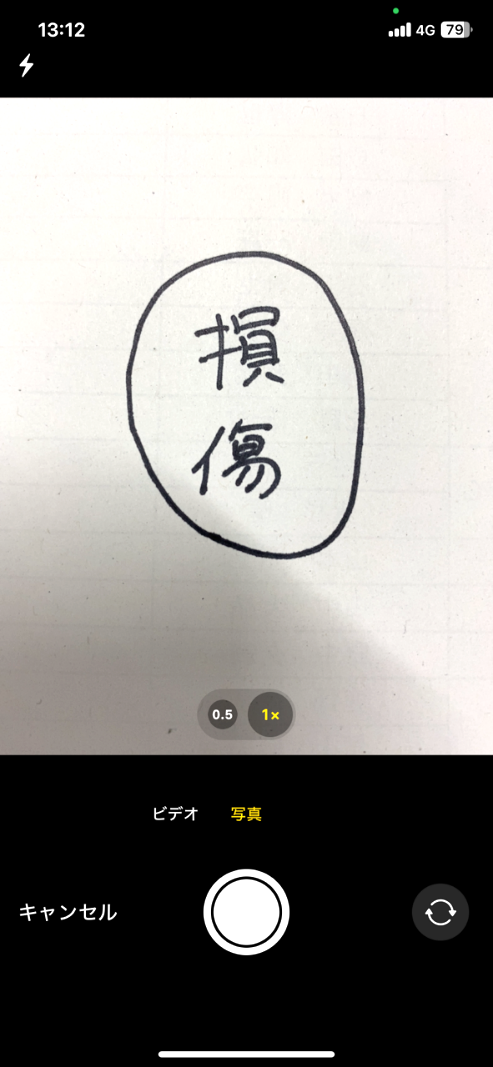 13:12
4G 79
損
傷
0.5 1×
ビデオ 写真
キャンセル